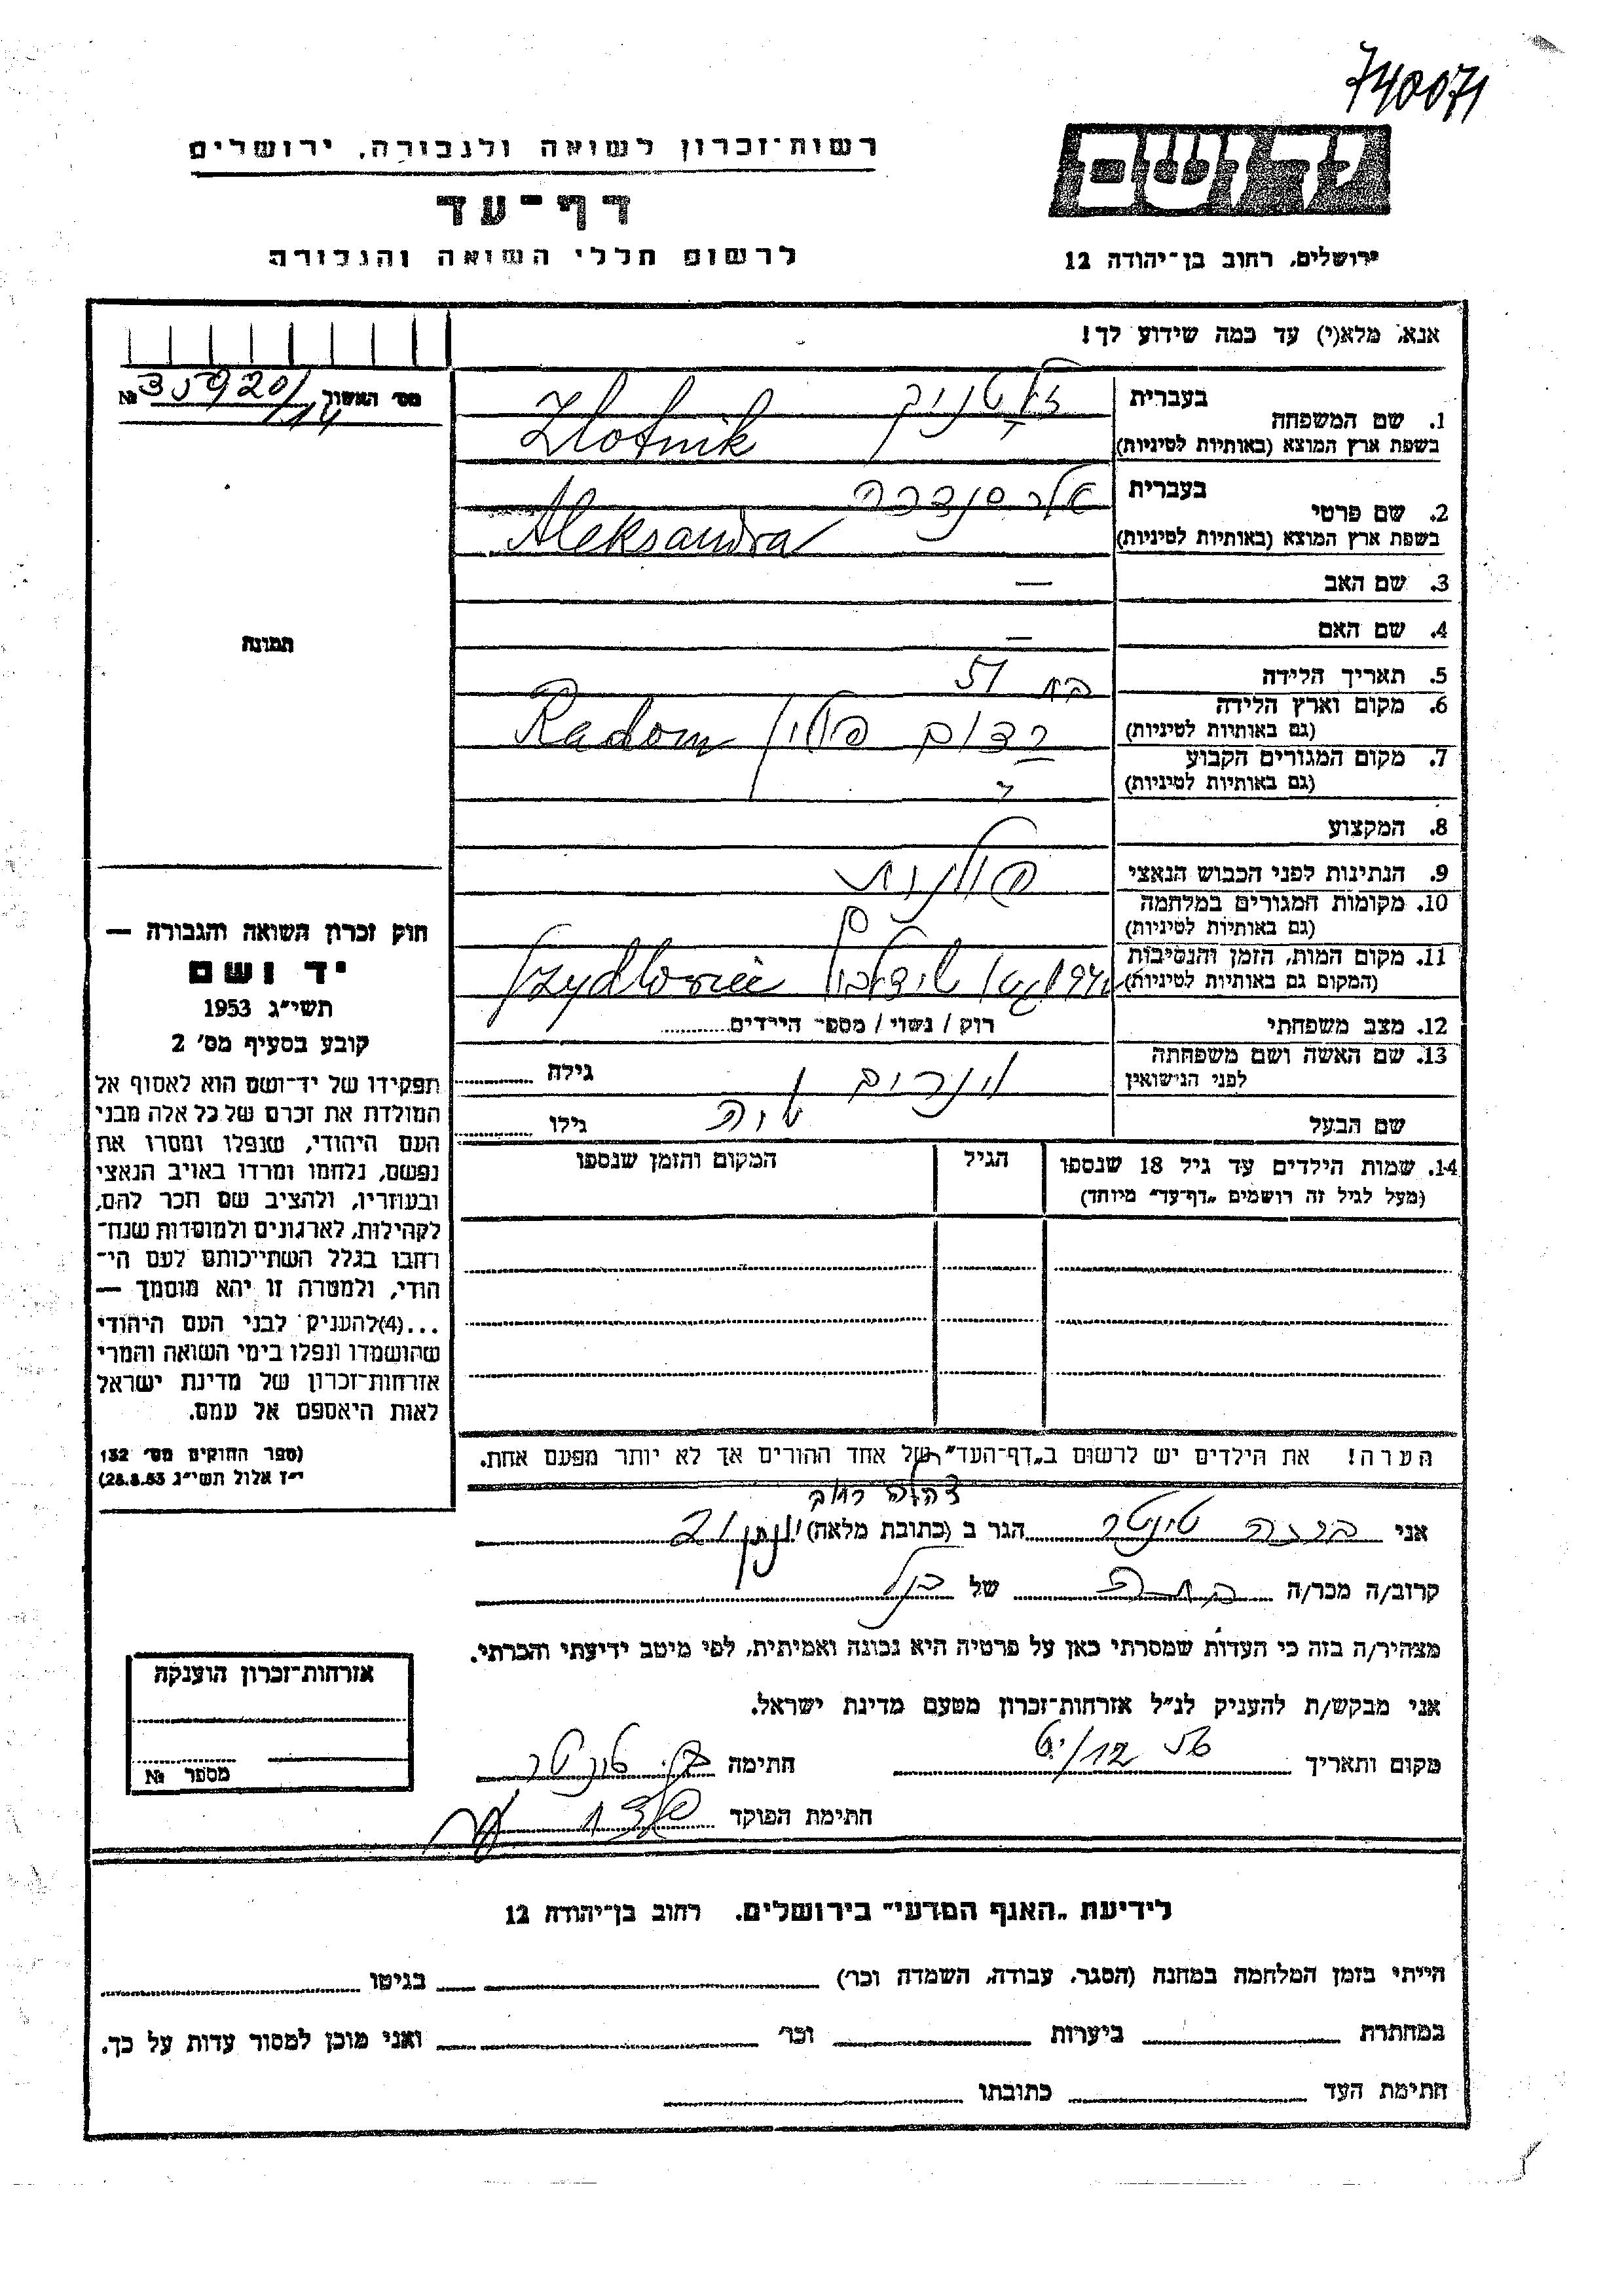 740071
יד ושם
ירושלים, רחוב בן־יהודה 12
רשות־זכרון לשואה ולגבורה, ירושלים
דף־עד
לרשום חללי השואה והגבורה
אנא, מלא(י) עד כמה שידוע לך!
מס' האשור № 35920/14
תמונה
1. שם המשפחה
בעברית זלטניק
בשפת ארץ המוצא (באותיות לטיניות) Zlotnik
2. שם פרטי
בעברית אלכסנדרה
בשפת ארץ המוצא (באותיות לטיניות) Aleksandra
3. שם האב —
4. שם האם —
5. תאריך הלידה בת 51
6. מקום וארץ הלידה
(גם באותיות לטיניות) רדום פולין Radom
7. מקום המגורים הקבוע
(גם באותיות לטיניות)
8. המקצוע
9. הנתינות לפני הכבוש הנאצי פולנית
10. מקומות המגורים במלחמה
(גם באותיות לטיניות)
11. מקום המות, הזמן והנסיבות
(המקום גם באותיות לטיניות) Szydlowiec
12. מצב משפחתי רוק / נשוי / מספר הילדים
13. שם האשה ושם משפחתה
לפני הנישואין גילה
שם הבעל גילו
14. שמות הילדים עד גיל 18 שנספו
(מעל לגיל זה רושמים „דף־עד" מיוחד)
הגיל
המקום והזמן שנספו
הערה! את הילדים יש לרשום ב„דף־העד" של אחד ההורים אך לא יותר מפעם אחת.
חוק זכרון השואה והגבורה —
יד ושם
תשי"ג 1953
קובע בסעיף מס' 2
תפקידו של יד־ושם הוא לאסוף אל
המולדת את זכרם של כל אלה מבני
העם היהודי, שנפלו ומסרו את
נפשם, נלחמו ומרדו באויב הנאצי
ובעוזריו, ולהציב שם וזכר להם,
לקהילות, לארגונים ולמוסדות שנח־
רחבו בגלל השתייכותם לעם הי־
הודי, ולמטרה זו יהא מוסמך —
...(4)להעניק לבני העם היהודי
שהושמדו ונפלו בימי השואה והמרי
אזרחות־זכרון של מדינת ישראל
לאות היאספם אל עמם.
(ספר החוקים מס' 132
י"ז אלול תשי"ג 28.8.53)
אני הגר ב (כתובת מלאה)
קרוב/ה מכר/ה של
מצהיר/ה בזה כי העדות שמסרתי כאן על פרטיה היא נכונה ואמיתית, לפי מיטב ידיעתי והכרתי.
אני מבקש/ת להעניק לנ"ל אזרחות־זכרון מטעם מדינת ישראל.
מקום ותאריך חתימה
חתימת הפוקד
אזרחות־זכרון הוענקה
מספר №
לידיעת „האגף המדעי" בירושלים, רחוב בן־יהודה 12
הייתי בזמן המלחמה במחנה (הסגר, עבודה, השמדה וכו') בגיטו
במחתרת ביערות וכו' ואני מוכן למסור עדות על כך.
חתימת העד כתובתו